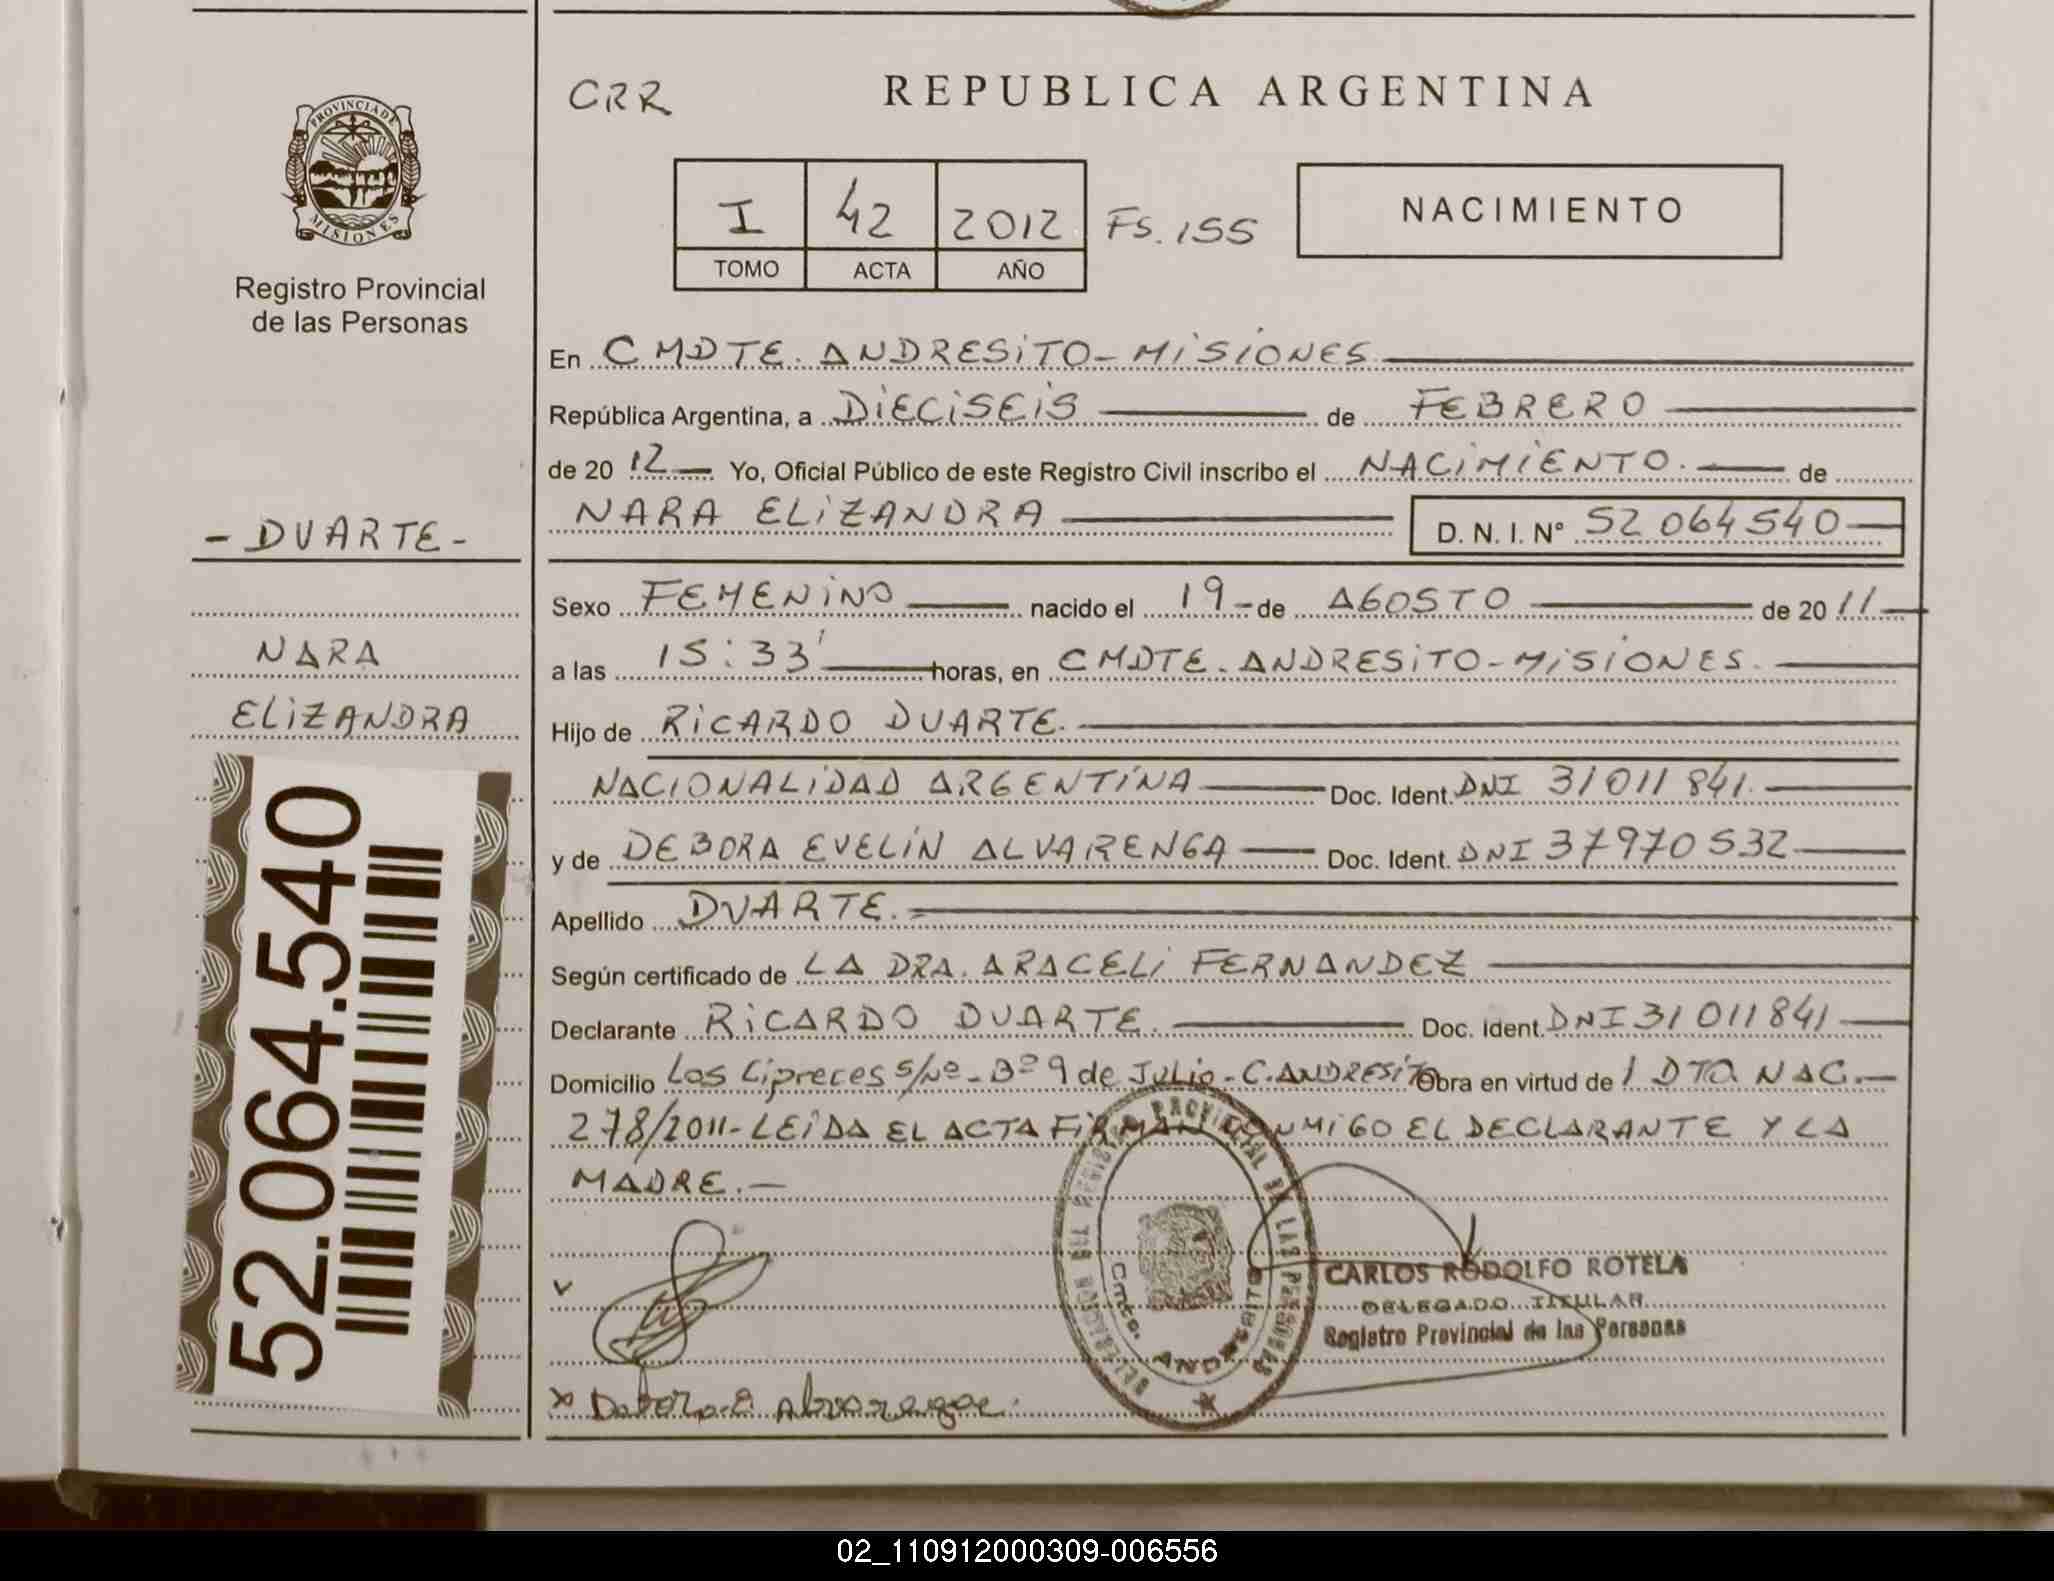 CRR
REPUBLICA ARGENTINA
PROVINCIA DE
MISIONES
Registro Provincial
de las Personas
I 42 2012 FS. 155
TOMO ACTA AÑO
NACIMIENTO
En CMDTE. ANDRESITO - MISIONES.
República Argentina, a DIECISEIS de FEBRERO
de 2012 Yo, Oficial Público de este Registro Civil inscribo el NACIMIENTO. de
NARA ELIZANDRA D. N. I. Nº 52 064 540
- DUARTE -
NARA
ELIZANDRA
52.064.540
Sexo FEMENINO nacido el 19 de AGOSTO de 2011
a las 15:33' horas, en CMDTE. ANDRESITO - MISIONES.
Hijo de RICARDO DUARTE.
NACIONALIDAD ARGENTINA Doc. Ident. DNI 31 011 841.
y de DEBORA EVELIN ALVARENGA Doc. Ident. DNI 37970532
Apellido DUARTE.
Según certificado de LA DRA. ARACELI FERNANDEZ
Declarante RICARDO DUARTE. Doc. Ident. DNI 31 011 841
Domicilio Los Cipreces S/Nº - Bº 9 de Julio - C. ANDRESITO Obra en virtud de 1 DTO NAC.
278/2011 - LEIDA EL ACTA FIRMAN CONMIGO EL DECLARANTE Y LA
MADRE.
DELEGACION DEL REGISTRO PROVINCIAL DE LAS PERSONAS
Cmte. ANDRESITO
CARLOS RODOLFO ROTELA
DELEGADO TITULAR
Registro Provincial de las Personas
x Debora E Alvarenga.
02_110912000309-006556